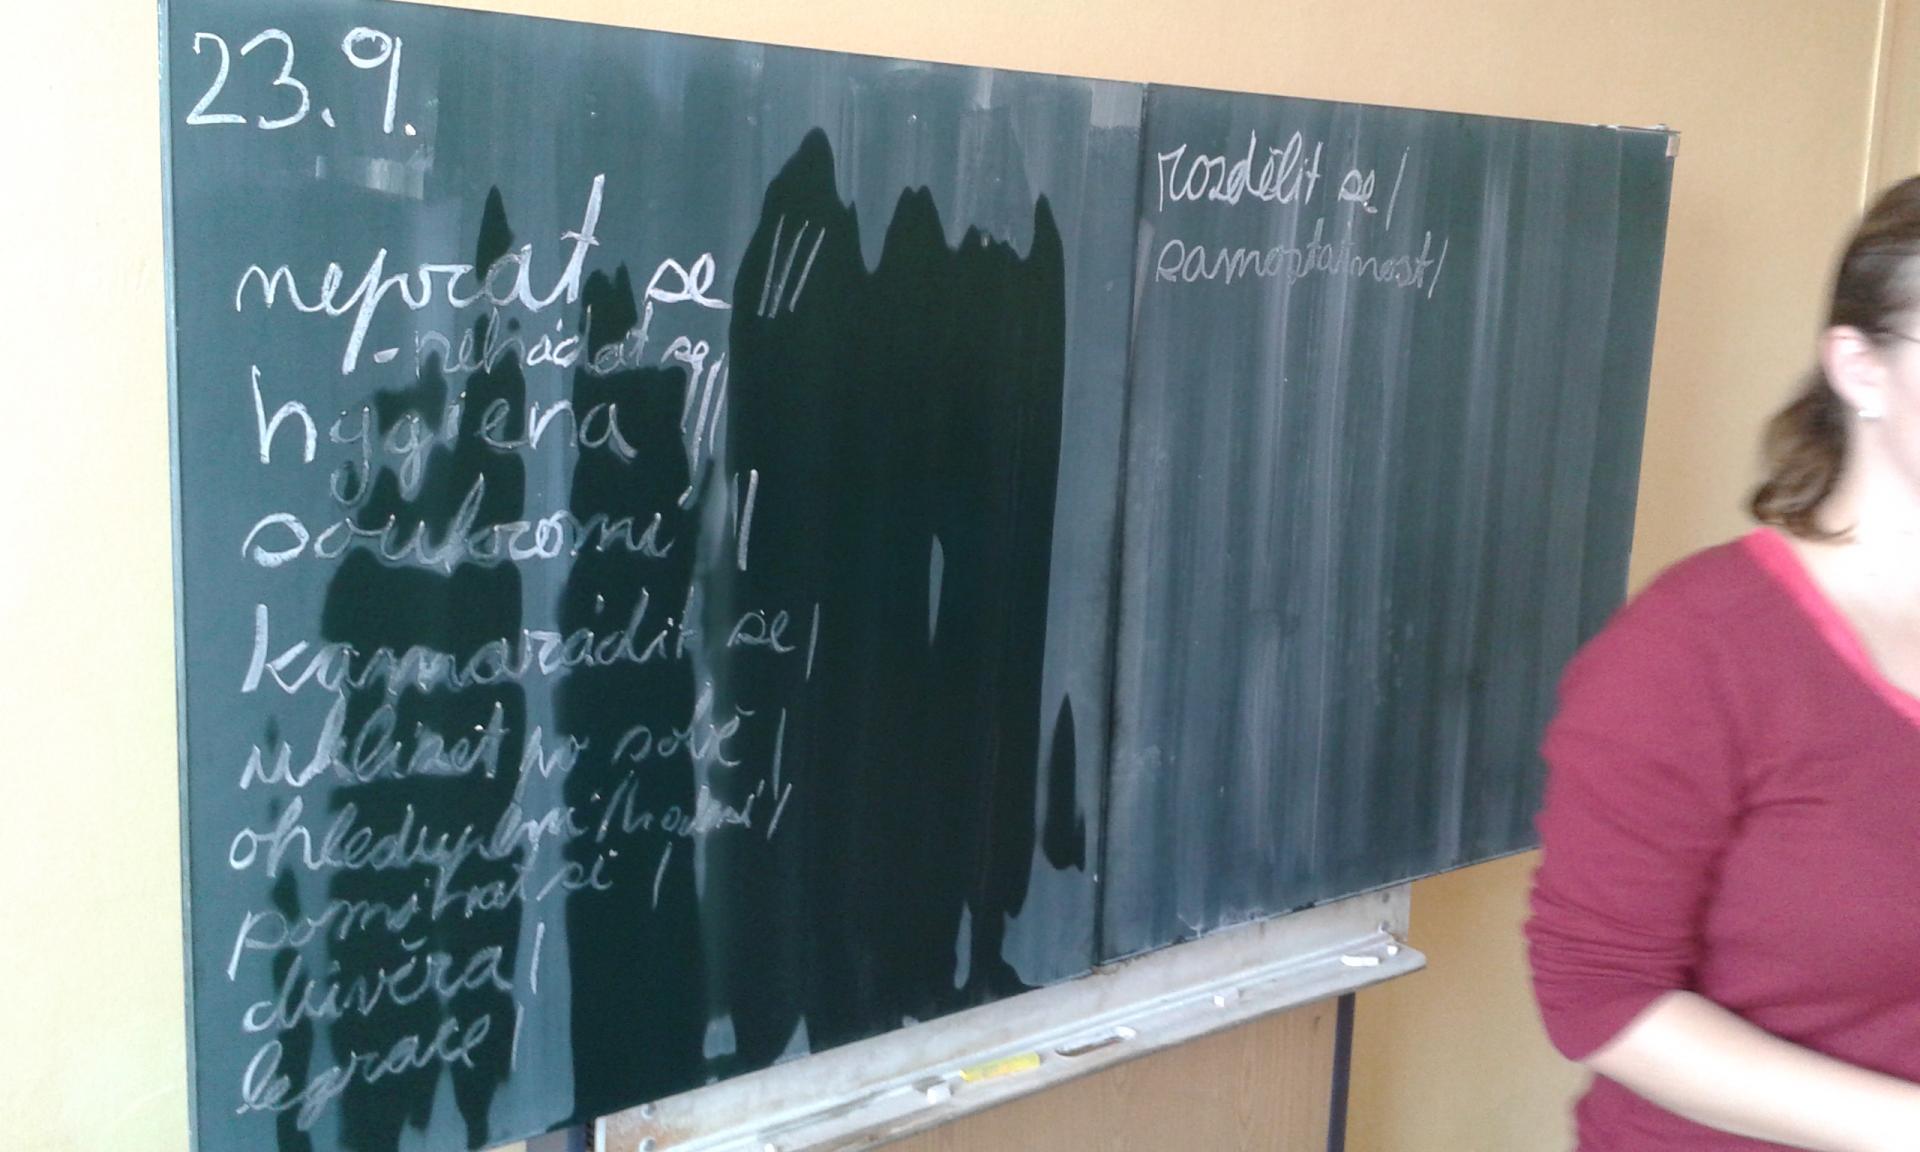 23. 9.
neprat se |||
- nehádat se
hygiena |||
soukromí ||
kamarádit se |
uklízet po sobě |
ohleduplní / hodní |
pomáhat si |
důvěra |
legrace |
rozdělit se |
samostatnost |